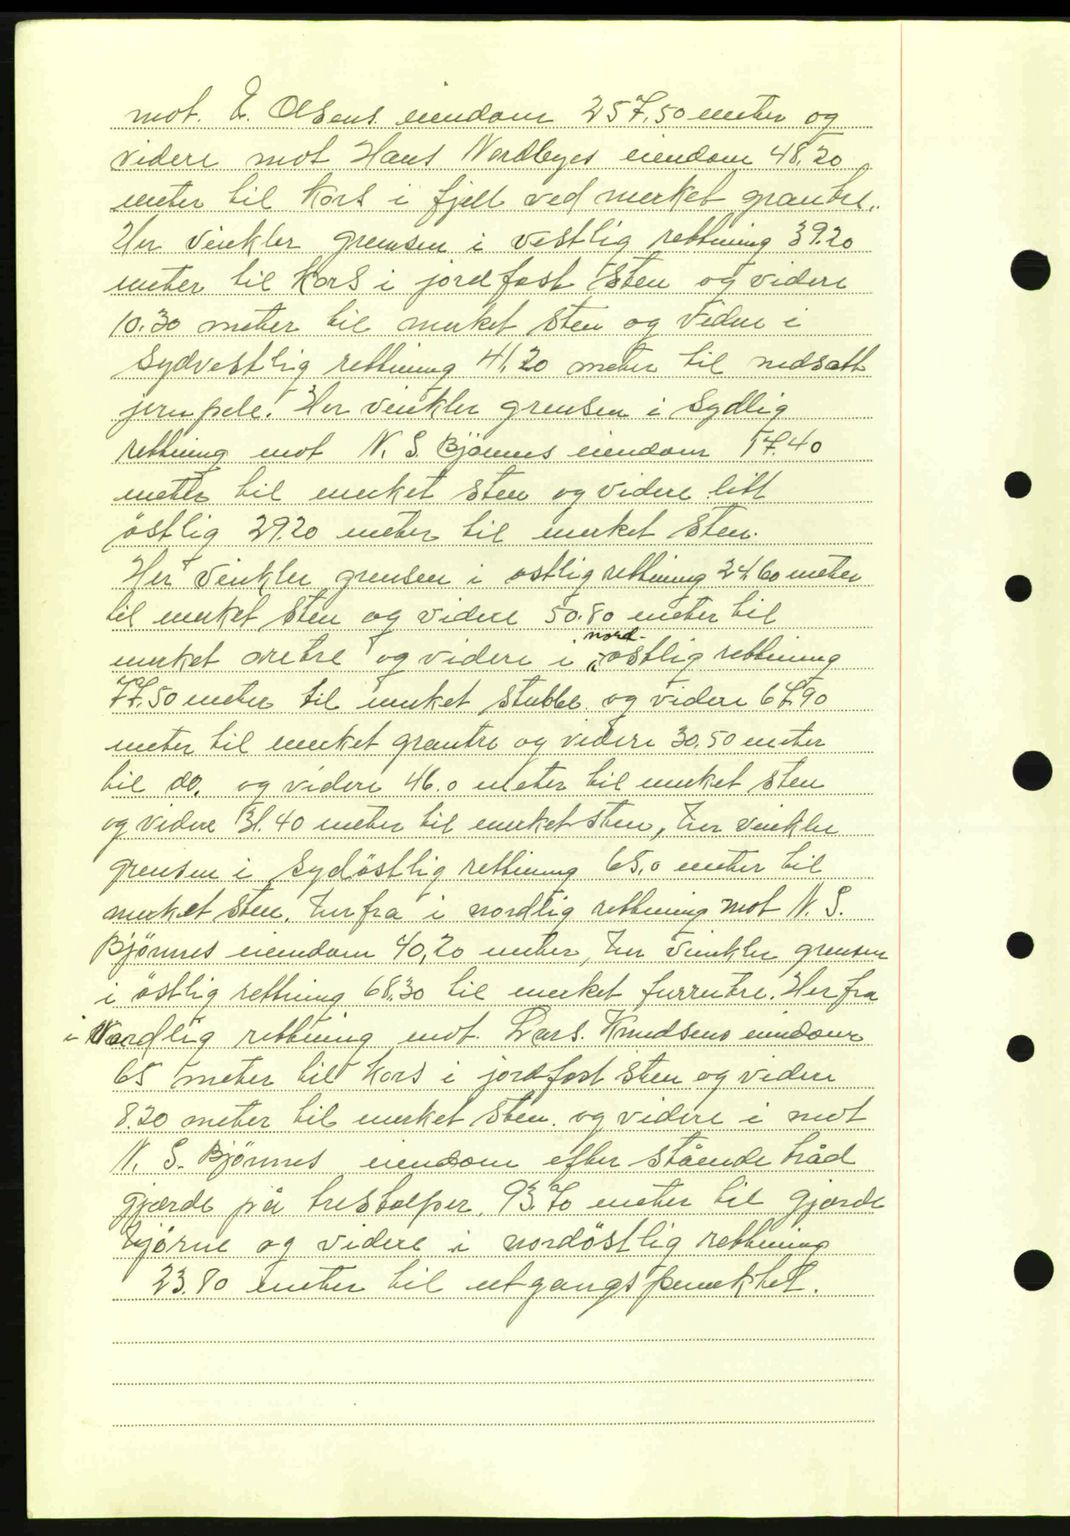 mot. E. Olsens. eiendom 257,50 meter og
videre mot Hans Nordbyes eiendom 48,20
meter til Kors i fjell ved merket grantre.
Her vinkler grensen i vestlig rettning 39.20
meter til Kors i jordfast sten og videre
10.30 meter til merket sten og videre i
sydvestlig rettning 41,20 meter til nedsatt
jernpele. Her vinkler grensen i sydlig
rettning mot N. S. Bjönnes eiendom 17.40
meter til merket sten og videre litt
östlig 29.20 meter til merket sten.
Her vinkler grensen i ostlig rettning 24.60 meter
til merket sten og videre 50.80 meter til
merket oretre og videre i nord-ostlig rettning
77.50 meter til merket stubbe og videre 67.90
meter til merket grantre og videre 30.50 meter
til do. og videre 46.0 meter til merket sten
og videre 31.40 meter til merket sten, her vinkler
grensen i sydöstlig rettning 65,0 meter til
merket sten. herfra i nordlig rettning mot N. S.
Bjönnes eiendom 40,20 meter, her vinkler grensen
i östlig rettning 68.30 til merket furrutre. Herfra
i Nordlig rettning mot. Lars. Knudsens eiendom
65 meter til kors i jordfast sten og videre
8.20 meter til merket sten. og videre i mot
N. S. Bjönnes eiendom efter stående tråd
gjærde på trestolper. 93.70 meter til gjærde
hjørne og videre i nordöstlig rettning
23.80 meter til utgangspunktet.